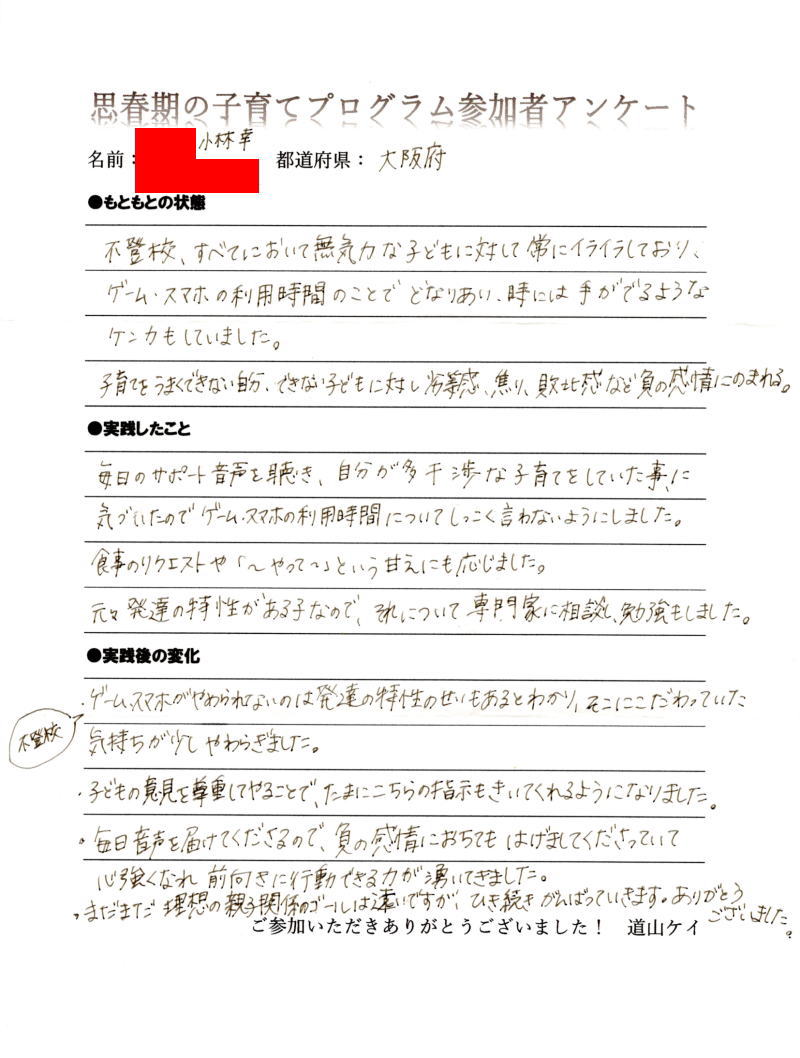 思春期の子育てプログラム参加者アンケート
小林幸
名前： 都道府県： 大阪府
●もともとの状態
不登校、すべてにおいて無気力な子どもに対して常にイライラしており、
ゲーム・スマホの利用時間のことでどなりあい、時には手がでるような
ケンカもしていました。
子育てをうまくできない自分、できない子どもに対し劣等感、焦り、敗北感など負の感情にのまれる。
●実践したこと
毎日のサポート音声を聴き、自分が多干渉な子育てをしていた事に
気づいたのでゲーム・スマホの利用時間についてしつこく言わないようにしました。
食事のリクエストや「～やって～」という甘えにも応じました。
元々発達の特性がある子なので、それについて専門家に相談し、勉強もしました。
●実践後の変化
・ゲーム、スマホがやめられないのは発達の特性のせいもあるとわかり、そこにこだわっていた
不登校
気持ちが少しやわらぎました。
・子どもの意見を尊重してやることで、たまにこちらの指示もきいてくれるようになりました。
・毎日音声を届けてくださるので、負の感情におちてもはげましてくださっていて
心強くなれ前向きに行動できる力が湧いてきました。
・まだまだ理想の親子関係のゴールは遠いですが、ひき続きがんばっていきます。ありがとう
ございました。
ご参加いただきありがとうございました！ 道山ケイ